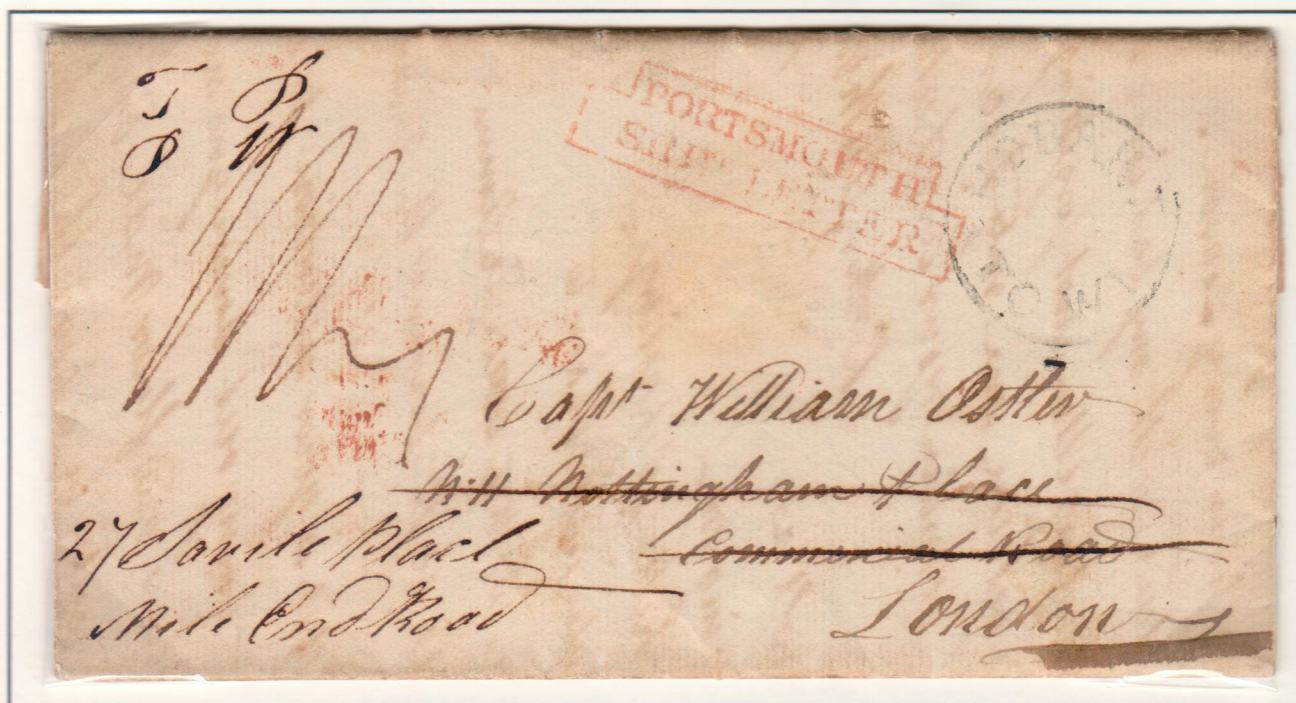 T P
P W
PORTSMOUTH
SHIP LETTER
HOBART
TOWN
Capt William Ostler
Nottingham Place
Commercial Road
London
27 Savile Place
Mile End Road